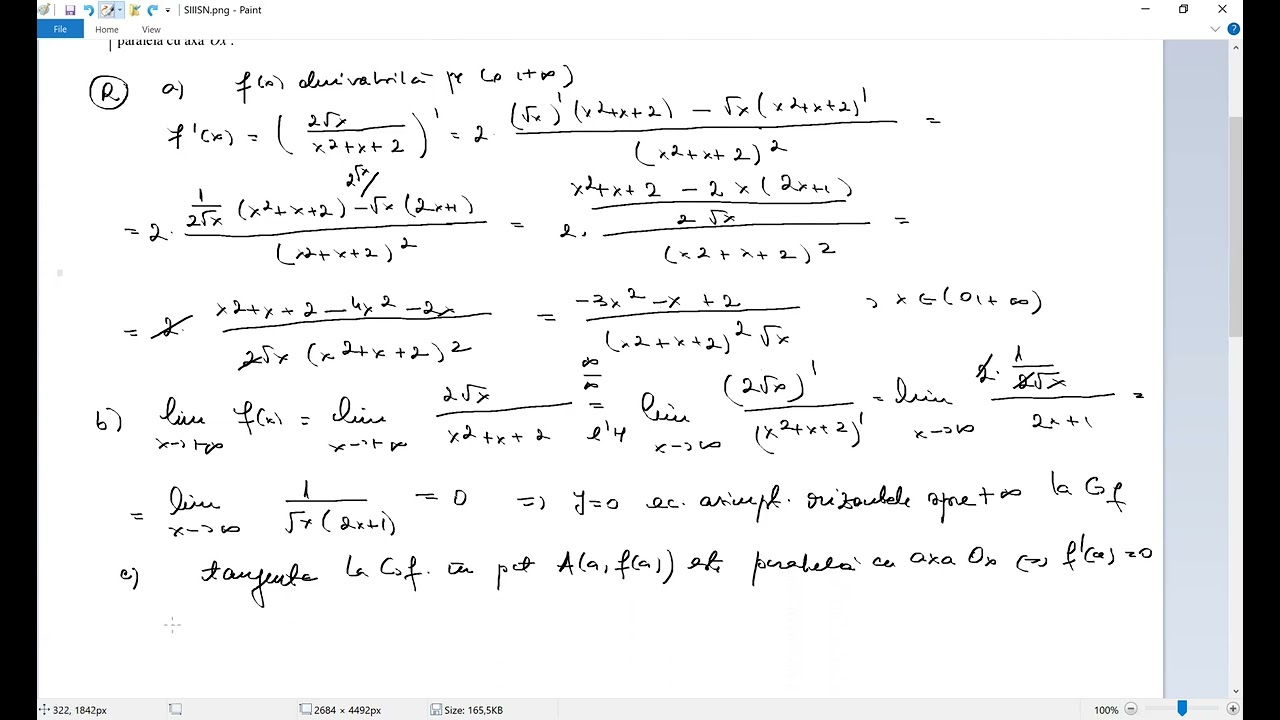 SIIISN.png - Paint
File Home View
paralelă cu axa Ox .
(R) a) f(x) derivabilă pe (0,+∞)
f'(x) = (2√x / (x²+x+2))' = 2· ((√x)'(x²+x+2) − √x(x²+x+2)') / (x²+x+2)² =
= 2· (1/(2√x) (x²+x+2) − √x(2x+1)) / (x²+x+2)² = 2· ((x²+x+2 − 2x(2x+1)) / (2√x)) / (x²+x+2)² =
= 2· (x²+x+2−4x²−2x) / (2√x (x²+x+2)²) = (−3x²−x+2) / ((x²+x+2)²√x) , x∈(0,+∞)
b) lim x→+∞ f(x) = lim x→+∞ 2√x / (x²+x+2) =(∞/∞, l'H) lim x→∞ (2√x)' / (x²+x+2)' = lim x→∞ (2· 1/(2√x)) / (2x+1) =
= lim x→∞ 1 / (√x(2x+1)) = 0 ⇒ y=0 ec. asimpt. orizontale spre +∞ la Gf
c) tangenta la Gf. în pct A(a, f(a)) este paralelă cu axa Ox ⇔ f'(a)=0
322, 1842px 2684 × 4492px Size: 165,5KB 100%